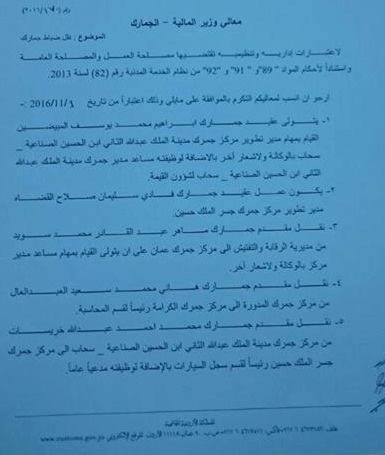 معالي وزير المالية - الجمارك
الموضوع : نقل ضباط جمارك
لاعتبارات إدارية وتنظيمية تقتضيها مصلحة العمل والمصلحة العامة
واستناداً لأحكام المواد "89" و "91" و "92" من نظام الخدمة المدنية رقم (82) لسنة 2013.
ارجو ان انسب لمعاليكم التكرم بالموافقة على مايلي وذلك اعتباراً من تاريخ 2016/11/ :-
١- يتولى عقيد جمارك ابراهيم محمد يوسف المبيضين
القيام بمهام مدير تطوير مركز جمرك مدينة الملك عبدالله الثاني ابن الحسين الصناعية _
سحاب بالوكالة ولاشعار آخر بالاضافة لوظيفته مساعد مدير جمرك مدينة الملك عبدالله
الثاني ابن الحسين الصناعية _ سحاب لشؤون القيمة.
٢- يكون عمل عقيد جمارك فادي سليمان صلاح القضاه
مدير تطوير مركز جمرك جسر الملك حسين.
٣- نقل مقدم جمارك ماهر عبد القادر محمد سويد
من مديرية الرقابة والتفتيش الى مركز جمرك عمان على ان يتولى القيام بمهام مساعد مدير
مركز بالوكالة ولاشعار آخر.
٤- نقل مقدم جمارك هاني محمد سعيد العبدالعال
من مركز جمرك المدورة الى مركز جمرك الكرامة رئيساً لقسم المحاسبة.
٥- نقل مقدم جمارك محمد احمد عبدالله خريسات
من مركز جمرك مدينة الملك عبدالله الثاني ابن الحسين الصناعية _ سحاب الى مركز جمرك
جسر الملك حسين رئيساً لقسم سجل السيارات بالإضافة لوظيفته مدعياً عاماً.
المملكة الأردنية الهاشمية
عمان ١١١١٨ الأردن. الموقع الإلكتروني www.customs.gov.jo